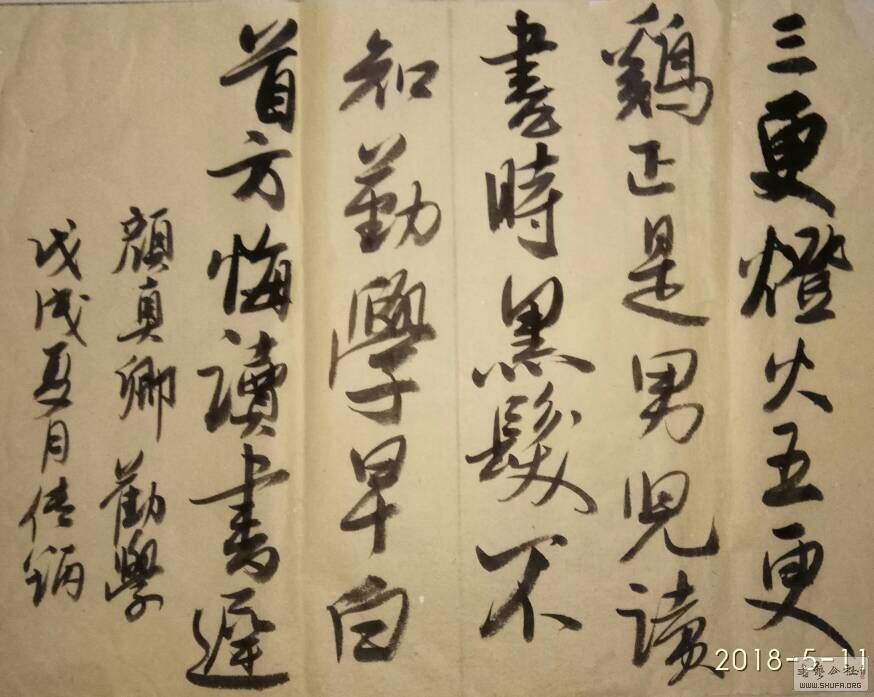 三更燈火五更
鷄正是男児讀
書時黑髮不
知勤學早白
首方悔讀書遲
顔真卿勸學
戊戌夏月
2018-5-11
WWW.SHUFA.ORG